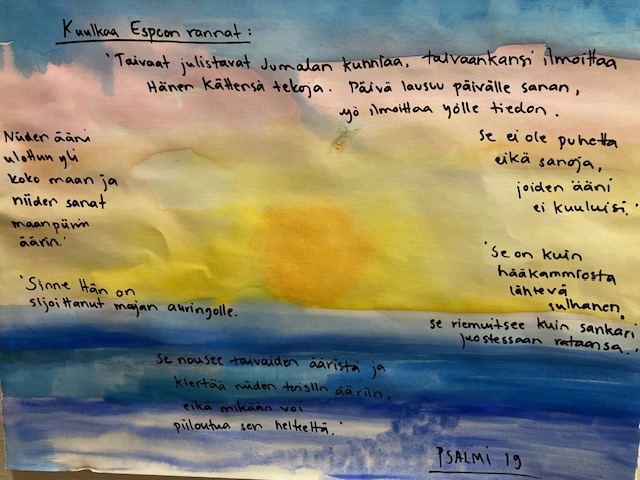 Kuulkaa Espoon rannat:
'Taivaat julistavat Jumalan kunniaa, taivaankansi ilmoittaa
Hänen Kättensä tekoja. Päivä lausuu päivälle sanan,
yö ilmoittaa yölle tiedon.
Se ei ole puhetta
eikä sanoja,
joiden ääni
ei kuuluisi.'
Niiden ääni
ulottuu yli
koko maan ja
niiden sanat
maanpiirin
ääriin.'
'Sinne Hän on
sijoittanut majan auringolle.
'Se on kuin
hääkammiosta
lähtevä
sulhanen.
se riemuitsee kuin sankari
juostessaan rataansa.'
Se nousee taivaiden ääristä ja
kiertää niiden toisiin ääriin,
eikä mikään voi
piiloutua sen helteeltä.'
PSALMI 19